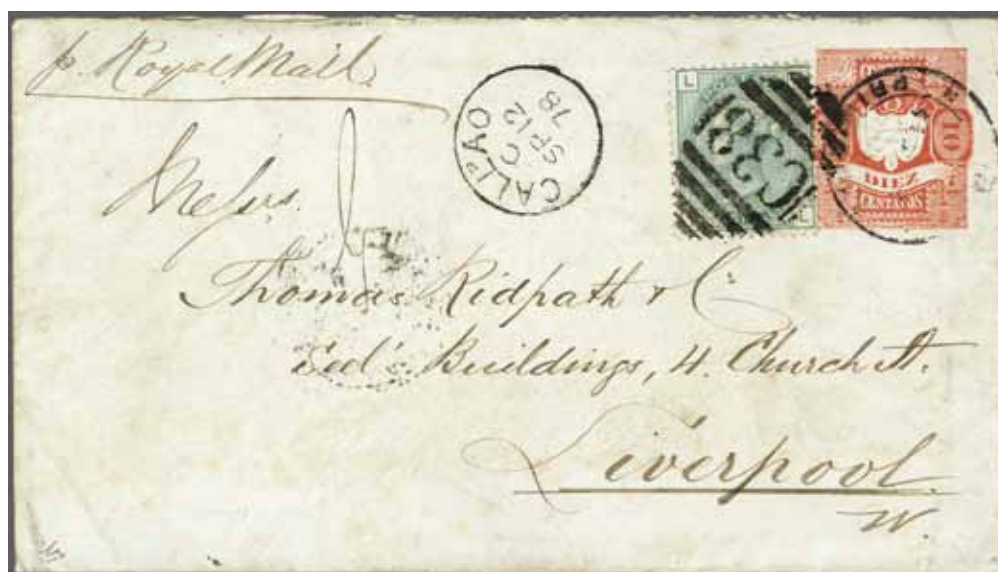 p. Royal Mail
CALLAO
C
SP 12
78
L
C38
L
10
DIEZ
CENTAVOS
Messrs.
Thomas Ridpath & Co
Buildings, 4. Church St.
Liverpool.